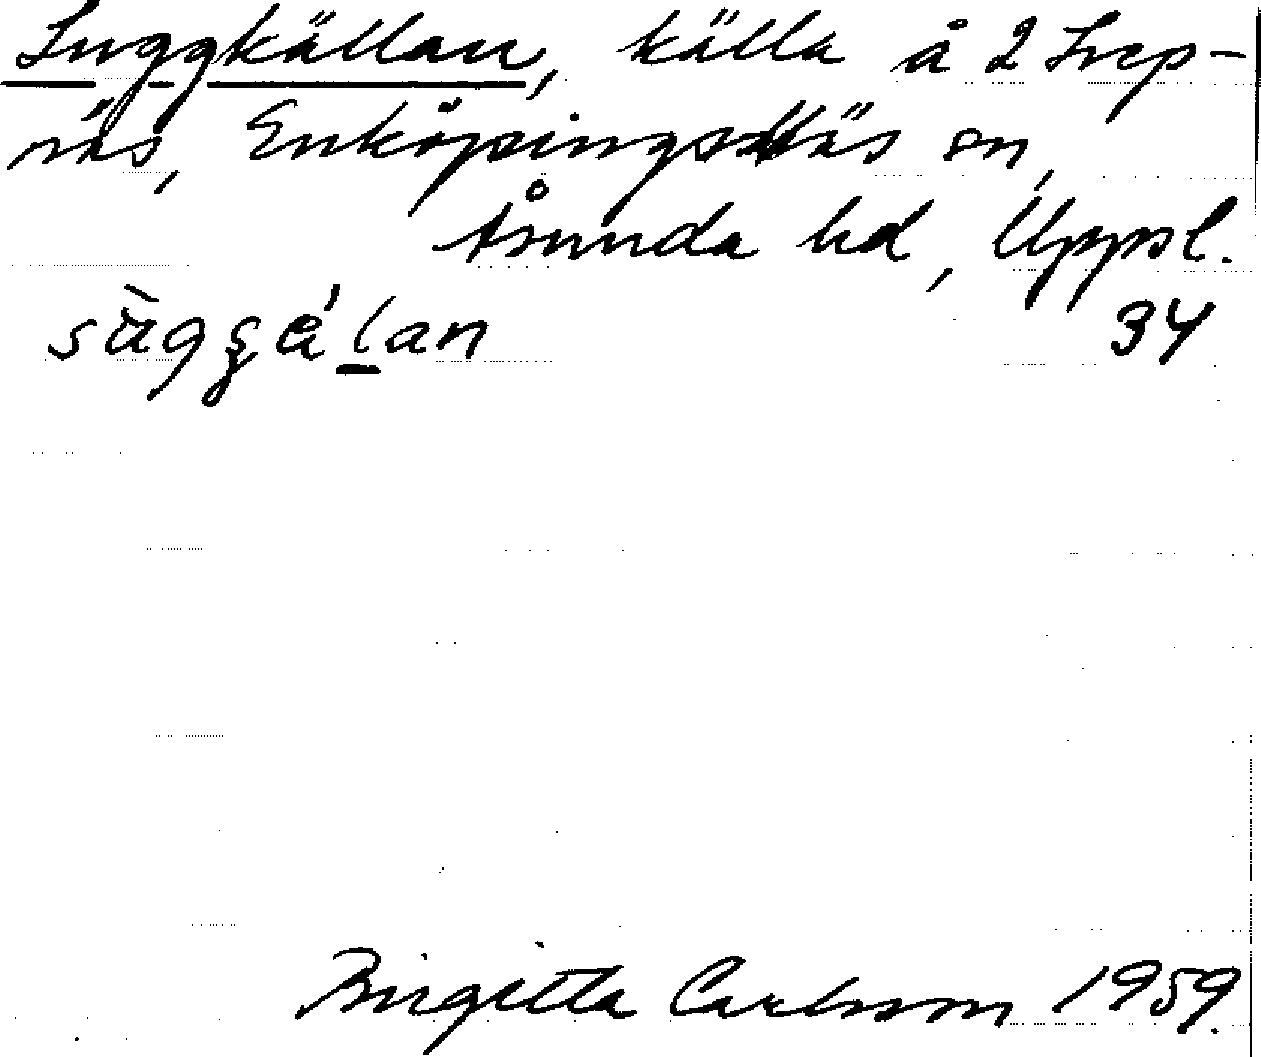 Suggkällan, källa å 2 Svep-
näs, Enköpingsnäs sn,
Åsunda hd, Uppsl.
sùggǽlan 34
Birgitta Carlsson 1959.